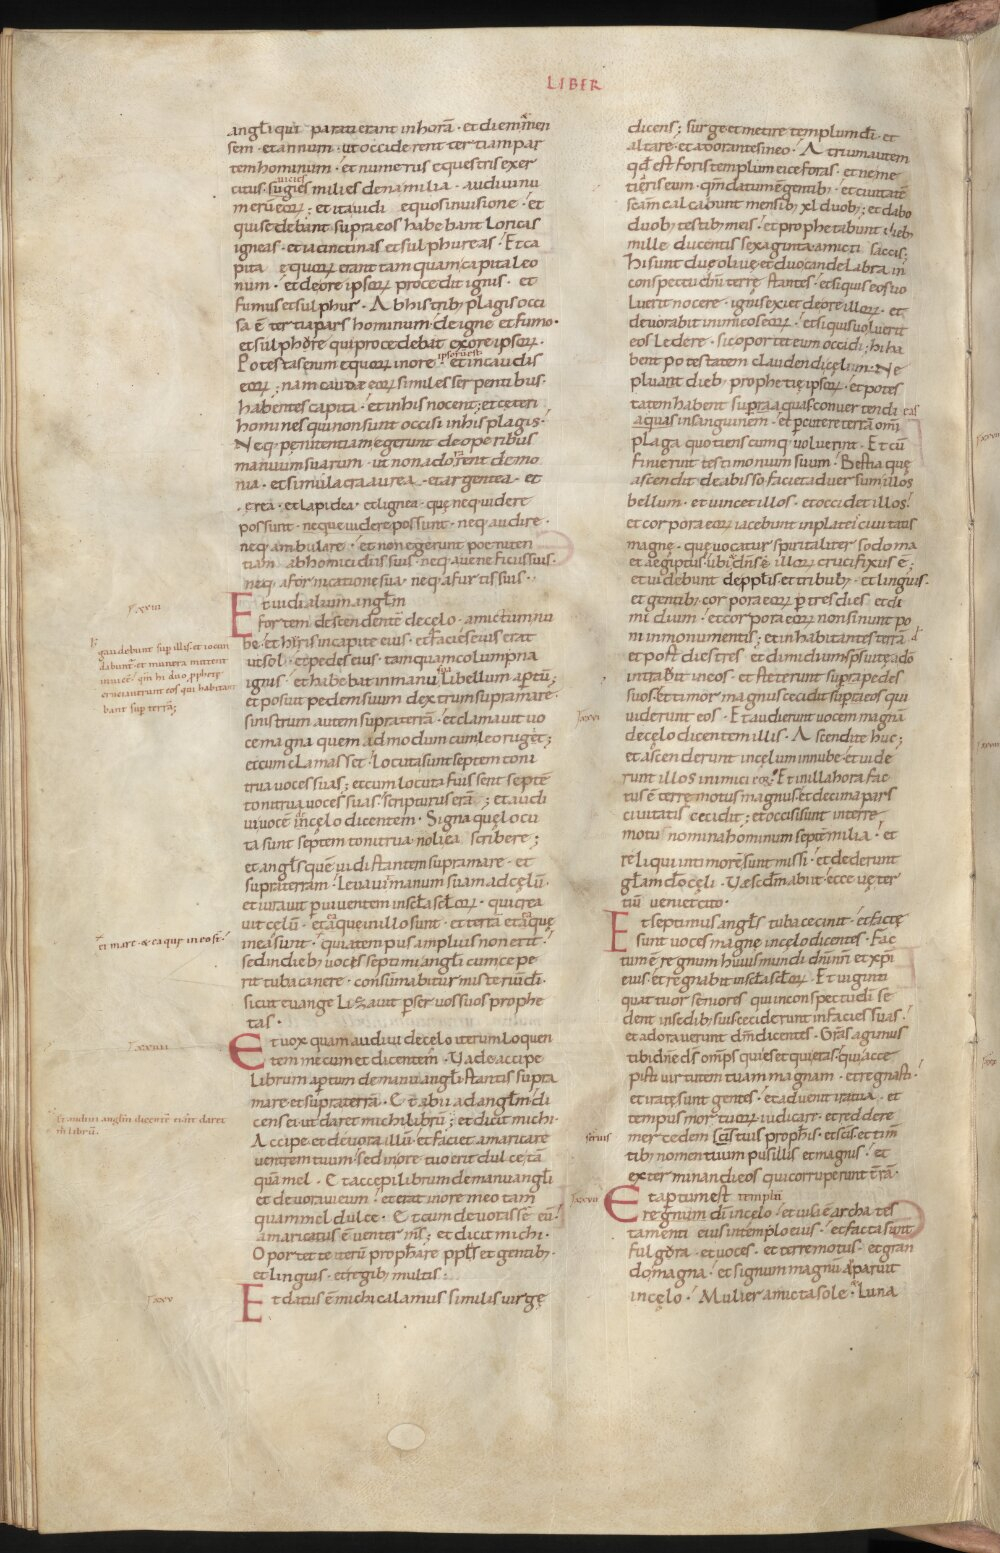 LIBER
angl̅i qui parati erant in horā · et diem · men
sem · et annum · ut occiderent tertiam par
tem hominum · et numerus equestris exer
citus · sugies milies dena milia · audivi nu
merū eoꝝ ; et ita vidi equos in visione · et
qui sedebant supra eos habebant loricas
igneas · et iacinctinas et sulphureas · Et ca
pita equoꝝ erant tam quam capita leo
num · et de ore ipsoꝝ procedit ignis · et
fumus et sulphur · Ab his trib; plagis occi
sa ē tertia pars hominum · de igne et fumo ·
et sulphore qui procedebat ex ore ipsoꝝ ·
Potestas enim equoꝝ in ore ipsoꝝ est · et in caudis
eoꝝ ; nam caudae eoꝝ similes serpentibus ·
habentes capita · et in his nocent ; et ceteri
homines qui non sunt occisi in his plagis ·
Neq; penitentiam egerunt de operibus
manuum suarum · ut non adorent demo
nia · et simulacra aurea · et argentea · et
erea · et lapidea · et lignea · que neq; videre
possunt · neque videre possunt · neq; audire ·
neq; ambulare · et non egerunt poeniten
tiam ab homicidiis suis · neq; a veneficiis suis ·
neq; a fornicatione sua · neq; a furtis suis ·
Et vidi alium angl̅m
fortem descendentē de cęlo · amictum nu
be · et hiris in capite eius · et facies eius erat
ut sol · et pedes eius · tamquam columpna
ignis · et habebat in manu sua libellum aptū ;
et posuit pedem suum dextrum supra mare ·
sinistrum autem supra terrā · et clamavit vo
ce magna quem ad modum cum leo rugit ;
et cum clamasset · locuta sunt septem toni
trua voces suas ; et cum locuta fuissent septē
tonitrua voces suas · scripturus erā ; et audi
vi vocē in cęlo dicentem · Signa quę locu
ta sunt septem tonitrua · noli ea scribere ;
et angl̅s quē vidi stantem supra mare · et
supra terram · levavit manum suam ad cęlū ·
et iuravit p viventem in scl̅a scl̅oꝝ · qui crea
vit cęlū · et ea que in illo sunt · et terrā et ea quę
in ea sunt · quia tempus amplius non erit ·
sed in dieb; voces septimi angl̅i cum cepe
rit tuba canere · consūmabitur misteriū di̅ ·
sicut evangelizavit p servos suos prophe
tas ·
Et vox quam audivi de cęlo iterum loquen
tem mecum et dicentem · Vade accipe
librum aptum de manu angl̅i stantis supra
mare et supra terrā · Et abii ad angl̅m di
cens ei ut daret michi librū ; et dicit michi ·
Accipe et devora illū · et faciet amaricare
ventrem tuum · sed in ore tuo erit dulce tā
quā mel · Et accepi librum de manu angl̅i
et devoravi eum · et erat in ore meo tam
quam mel dulce · Et cum devorassē eū ·
amaricatus ē venter ms̅ ; et dicit michi ·
Oportet te iterū prophare ppl̅s et gentib; ·
et linguis · et regib; multis ·
Et datus ē michi calamus similis virgę
xxiii
gaudebunt sup illos · et iocun
dabunt · et munera mittent
invicē · qm̅ hi duo pphetę
cruciaverunt eos qui habita
bant sup terrā ;
et mare · & ea que in eo st̅ ·
xxiiii
Et audivi anglm̅ dicentē
m̅ librū ·
xxv
dicens ; surge et metire templum di̅ · et
altare · et adorantes in eo · Atrium autem
qd̅ est foris templum eice foras · et ne me
tieris eum · qm̅ datum ē gentib; · et civitatē
scām calcabunt mensib; xl duob; ; et dabo
duob; testib; meis · et prophetabunt dieb;
mille ducentis sexaginta amicti saccis ;
hi sunt duę olivę · et duo candelabra in
conspectu dn̅i terrę stantes · et si quis eos vo
luerit nocere · ignis exiet de ore illoꝝ · et
devorabit inimicos eoꝝ · et si quis voluerit
eos ledere · sic oportet eum occidi ; hi ha
bent potestatem claudendi cęlum · Ne
pluant dieb; prophetię ipsoꝝ · et potes
tatem habent supra aquas convertendi eas
aquas in sanguinem · et pcutere terrā omi
plaga quotienscumq; voluerint · Et cū
finierint testimonium suum · Bestia quę
ascendit de abisso faciet adversum illos
bellum · et vincet illos · et occidet illos ·
et corpora eoꝝ iacebunt in platei civitatis
magnę · que vocatur spiritaliter sodoma
et aegiptus · ubi & dn̅s e illoꝝ crucifixus ē ;
et videbunt de ppl̅is et tribub; · et linguis ·
et gentib; corpora eoꝝ p tres dies · et di
midium · et corpora eoꝝ non sinunt po
ni in monumentis ; et inhabitantes terrā
et post dies tres et dimidium sps̅ vitę a do̅
intrabit in eos · et steterunt supra pedes
suos et timor magnus cecidit supra eos qui
viderunt eos · Et audierunt vocem magnā
de cęlo dicentem illis · Ascendite huc ;
et ascenderunt in cęlum in nube · et vide
runt illos inimici eoꝝ · Et in illa hora fac
tus ē terre motus magnus · et decima pars
civitatis cecidit ; et occisi sunt in terre
motu nomina hominum septē milia · et
reliqui in timorē sunt missi · et dederunt
gl̅am do̅ cęli · Vae scd̅m abiit · ecce vę ter
tiū veniet cito ·
Et septimus angl̅s tuba cecinit · et factę
sunt voces magnę in cęlo dicentes · Fac
tum ē regnum huius mundi dn̅i nr̅i et xp̅i
eius · et regnabit in scl̅a scl̅oꝝ · Et viginti
quattuor seniores qui in conspectu di̅ se
dent in sedib; suis ceciderunt in facies suas ·
et adoraverunt dm̅ dicentes · Gr̅as agimus
tibi dn̅e ds̅ omps · qui es et qui eras · qui acce
pisti virtutem tuam magnam · et regnasti ·
et irate sunt gentes · et advenit ira tua · et
tempus mortuoꝝ iudicari · et reddere
mercedem scis tuis proph̅is · et scis · et tim̅
tib; nomen tuum pusillis et magnis · et
exterminandi eos qui corruperunt t̅rā ·
Et aptum est templū
regnum di̅ in cęlo · et visa ē archa tes
tamenti eius in templo eius · et facta sunt
fulgora · et voces · et terremotus · et gran
do magna · et signum magnū apparuit
in cęlo · Mulier amicta sole · & luna
xxvi
servis
xxvii